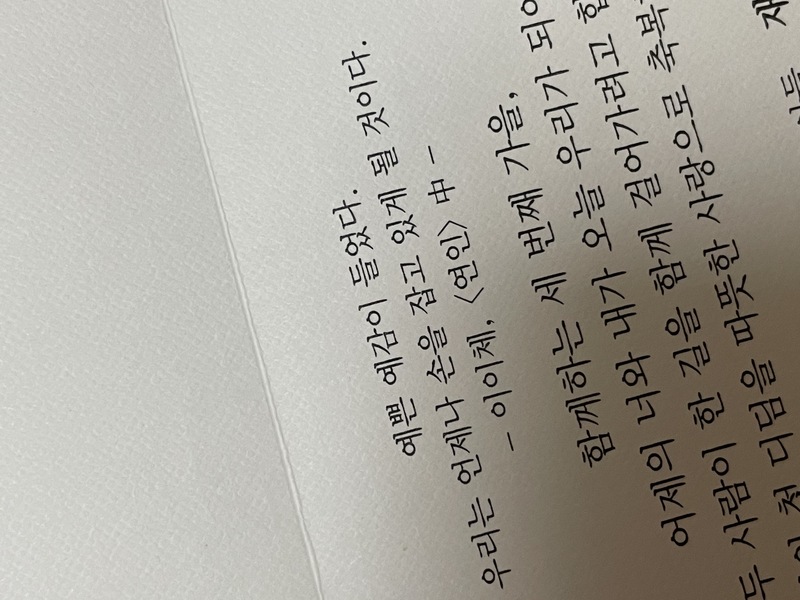 예쁜 예감이 들었다.
우리는 언제나 손을 잡고 있게 될 것이다.
- 이이체, <연인> 中 -
함께하는 세 번째 가을,
어제의 너와 내가 오늘 우리가
두 사람이 한 길을 함께 걸어가려고
첫 디딤을 따뜻한 사랑으로